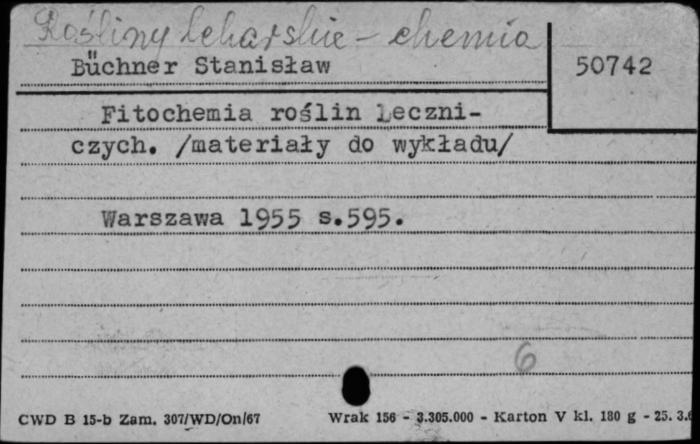 Rośliny lekarskie - chemia
Büchner Stanisław
50742
Fitochemia roślin leczni-
czych. /materiały do wykładu/
Warszawa 1955 s.595.
6
CWD B 15-b Zam. 307/WD/On/67 Wrak 156 - 3.305.000 - Karton V kl. 180 g - 25. 3.6